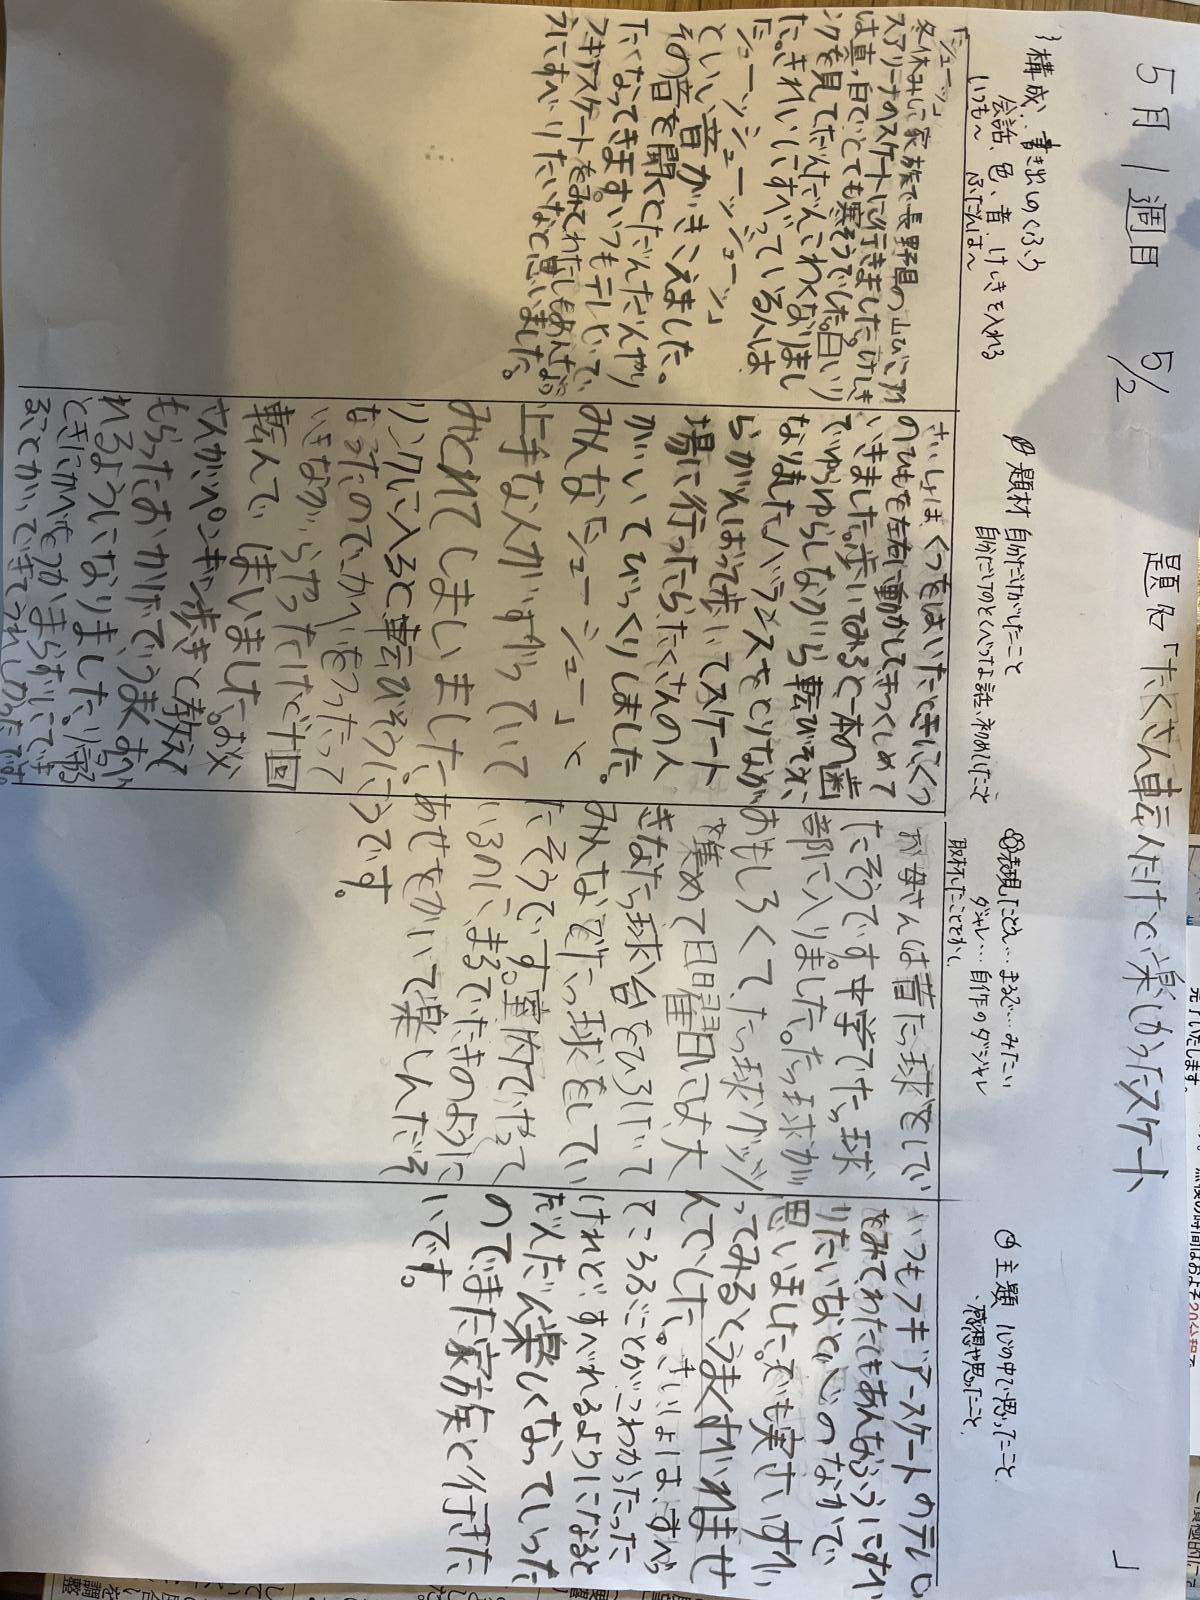 5月1週目 5/2 題名「たくさん転んだけど楽しかったスケート」
構成、書き出しのくふう
会話、色、音、けしきを入れる
いつも〜 ふだんは〜
題材 自分だけがしたこと
自分だけのとくべつな話、初めてしたこと
表現 たとえ…まるで…みたい
ダジャレ…自作のダジャレ
取材したことでかく
主題 心の中で思ったこと
、感想や思ったこと
「シューッ」
冬休みに家族で長野県の山びこアイ
スアリーナのスケートに行きました。けしき
は真っ白でとても寒そうでした。白いリ
ンクを見てだんだんこわくなりまし
た。きれいにすべっている人は
「シューッシューッシューッ」
といい音がきこえました。
その音を聞くとだんだんやり
たくなってきます。いつもテレビで
フギアスケートをみてわたしもあんなふ
うにすべりたいなと思いました。
さいしょは、くつをはいたときにくつ
のひもを左右に動かしてきつくしめて
いきました。歩いてみると一本の歯
でゆらゆらしながら転びそうに
なりました。バランスをとりなが
らがんばって歩いてスケート
場に行ったらたくさんの人
がいてびっくりしました。
みんな「シューシュー」と
上手な人がすべっていて
みとれてしまいました。
リンクに入ると転びそうに
なったのでかべをつたって
いきながらやったけど十回
転んでしまいました。お父
さんがペンギン歩きと教えて
もらったおかげでうまくすべ
れるようになりました。帰る
ときにかべをつかまらずにでき
ることができてうれしかったです。
お母さんは昔たっ球をしてい
たそうです。中学でたっ球
部に入りました。たっ球が
おもしろくて、たっ球グッズ
を集めて日曜日には、大
きなたっ球台をひろげて
みんなでたっ球をしてい
たそうです。室内でやって
いるのに、まるでたきのように
あせをかいて楽しんだそ
うです。
いつもフギアースケートのテレビ
をみてわたしもあんなふうにすべ
りたいなと心のなかで
思いました。でも実さいすべ
ってみるとうまくすべれませ
んでした。さいしょは、すべっ
てころぶことがこわかった
けれど、すべれるようになると
だんだん楽しくなっていった
のでまた家族と行きた
いです。